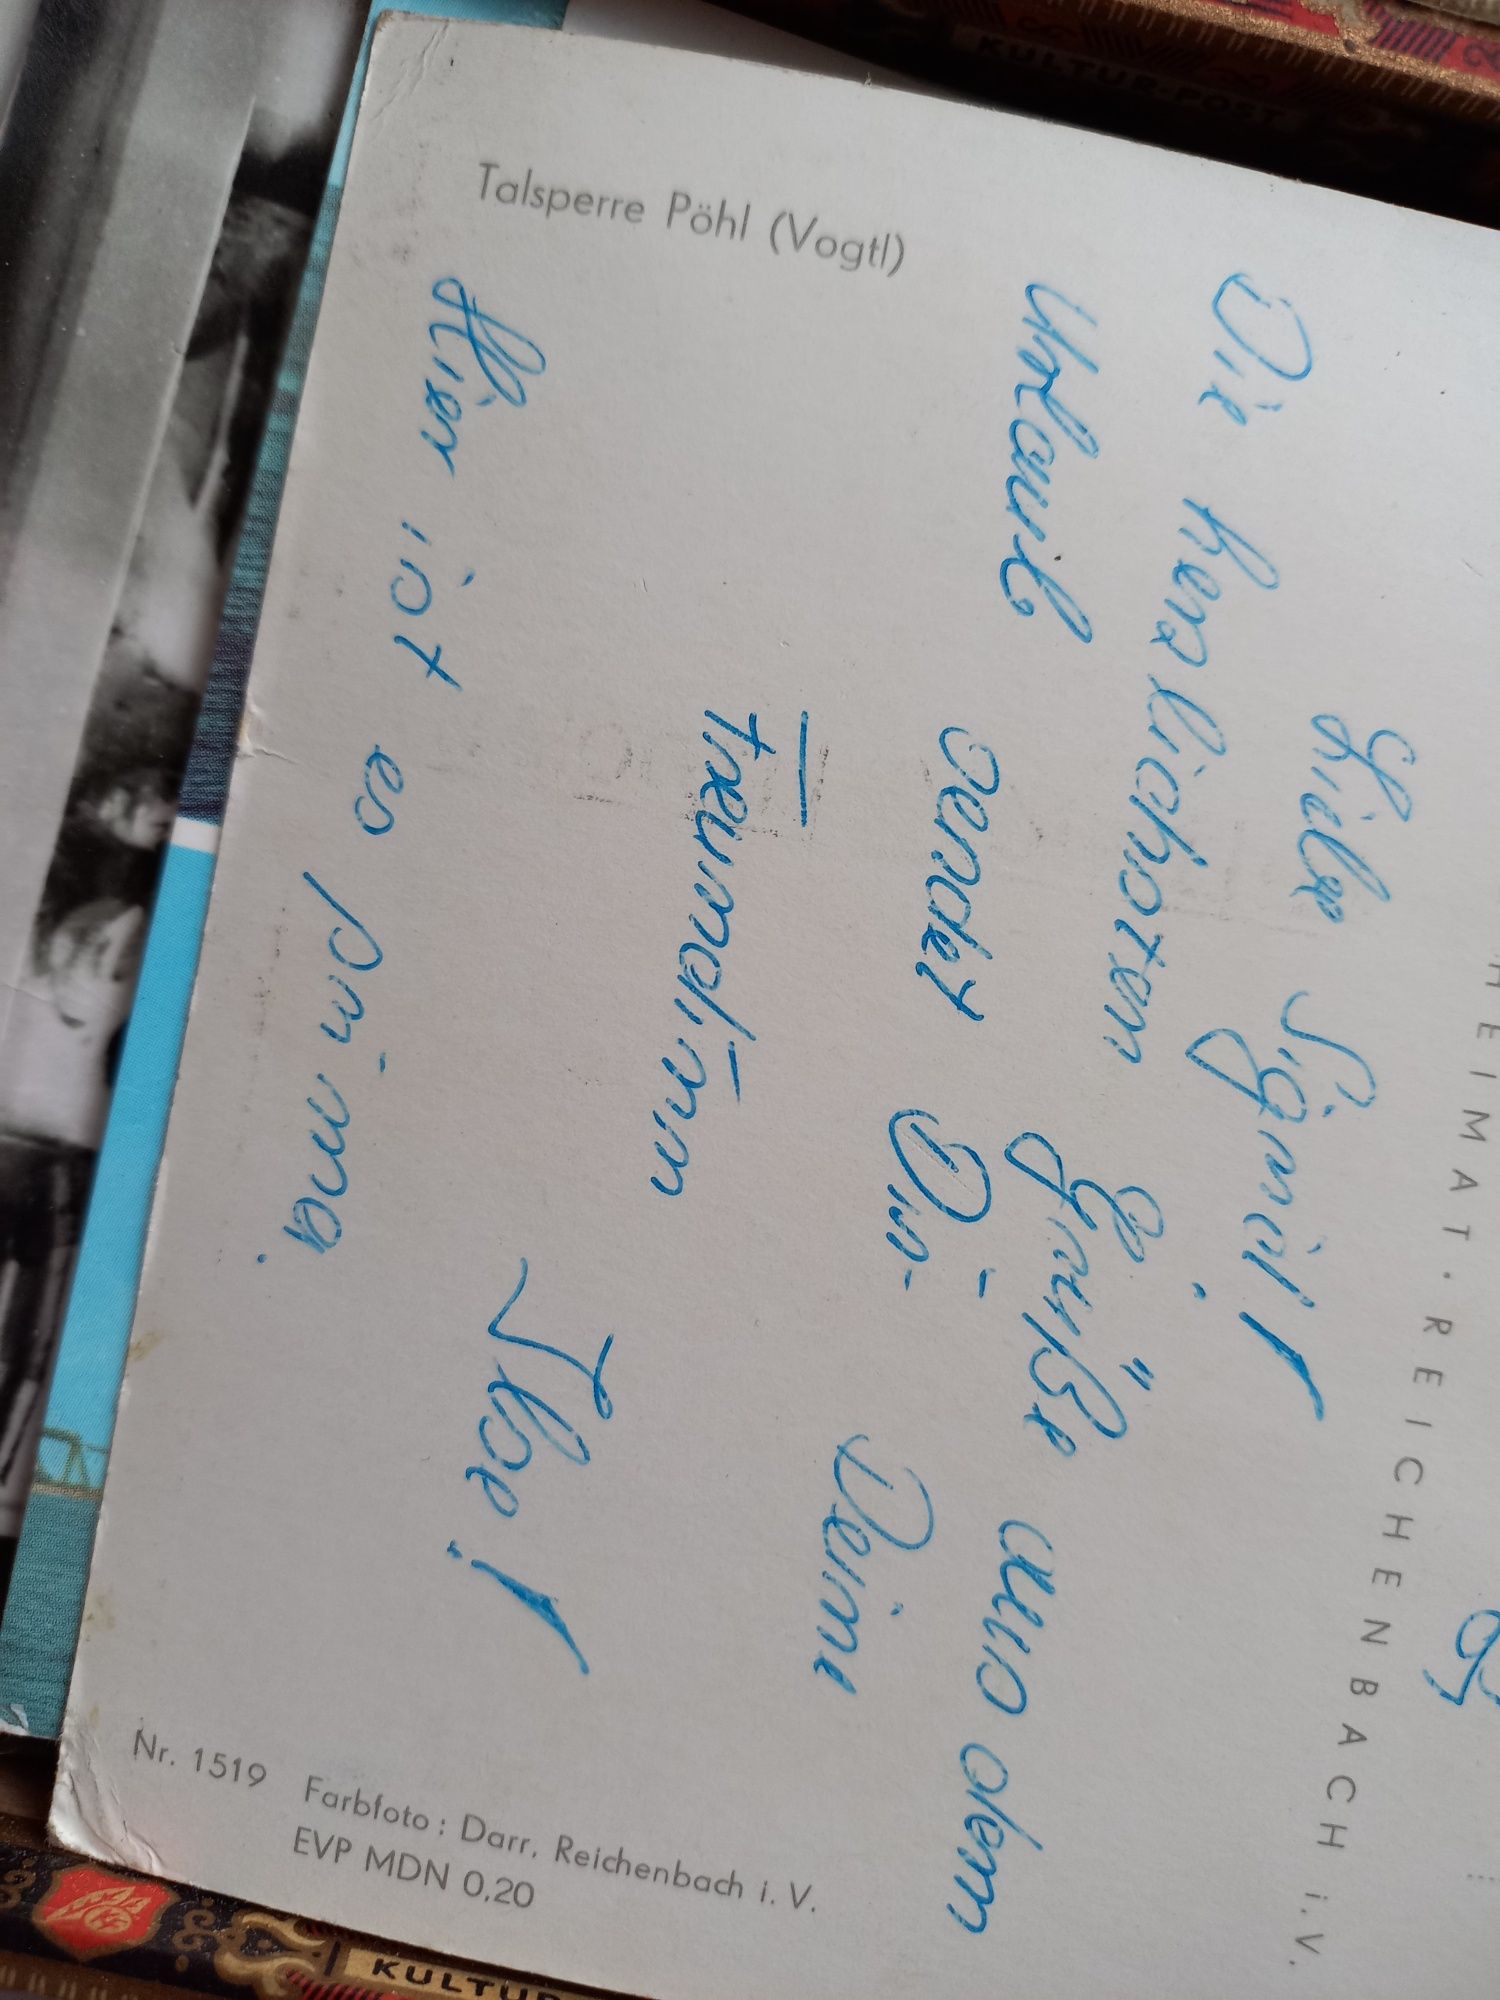 Talsperre Pöhl (Vogtl)
Liebe Sigrid!
Die herzlichsten Grüße aus dem
Urlaub sendet Dir
Deine
Freundinn
Ilse!
Hier ist es prima.
Nr. 1519 Farbfoto: Darr, Reichenbach i. V.
EVP MDN 0,20
HEIMAT · REICHENBACH i. V.
KULTUR-POST
KULTUR